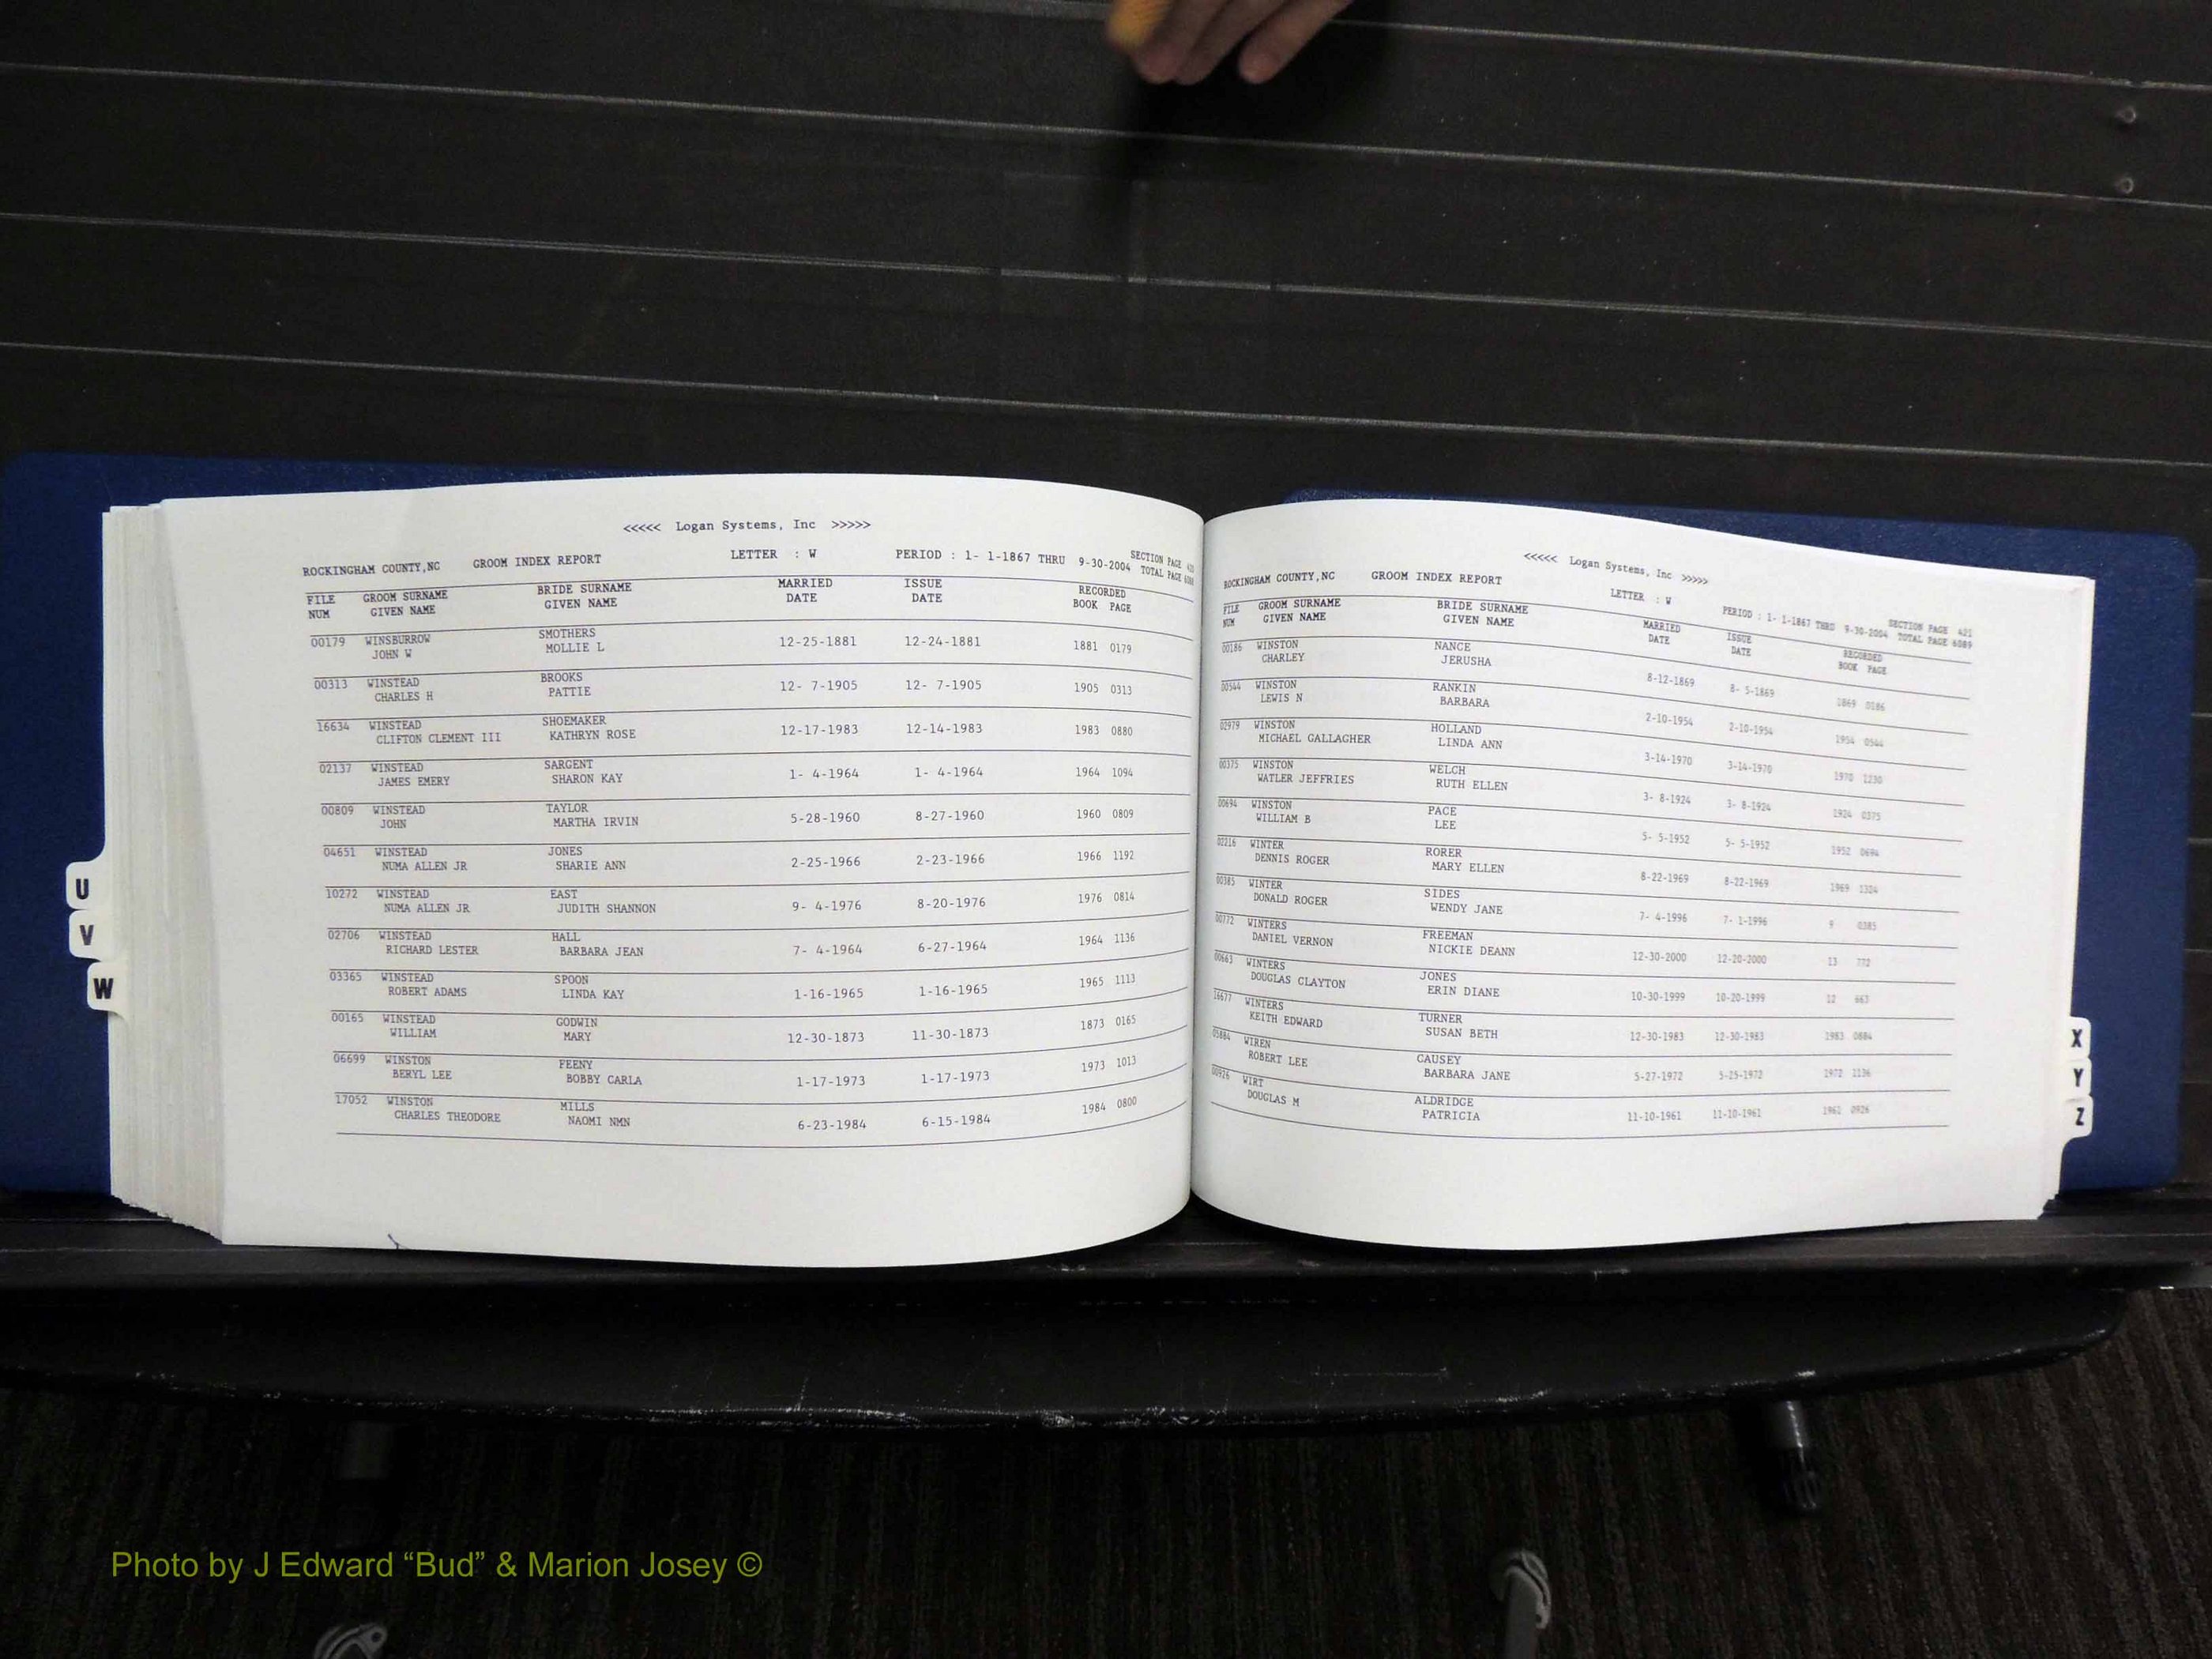 <<<<< Logan Systems, Inc >>>>>
ROCKINGHAM COUNTY,NC GROOM INDEX REPORT LETTER : W PERIOD : 1- 1-1867 THRU 9-30-2004 SECTION PAGE
TOTAL PAGE
FILE GROOM SURNAME BRIDE SURNAME MARRIED ISSUE RECORDED
NUM GIVEN NAME GIVEN NAME DATE DATE BOOK PAGE
00179 WINSBURROW SMOTHERS 12-25-1881 12-24-1881 1881 0179
JOHN W MOLLIE L
00313 WINSTEAD BROOKS 12- 7-1905 12- 7-1905 1905 0313
CHARLES H PATTIE
16634 WINSTEAD SHOEMAKER 12-17-1983 12-14-1983 1983 0880
CLIFTON CLEMENT III KATHRYN ROSE
02137 WINSTEAD SARGENT 1- 4-1964 1- 4-1964 1964 1094
JAMES EMERY SHARON KAY
00809 WINSTEAD TAYLOR 5-28-1960 8-27-1960 1960 0809
JOHN MARTHA IRVIN
04651 WINSTEAD JONES 2-25-1966 2-23-1966 1966 1192
NUMA ALLEN JR SHARIE ANN
10272 WINSTEAD EAST 9- 4-1976 8-20-1976 1976 0814
NUMA ALLEN JR JUDITH SHANNON
02706 WINSTEAD HALL 7- 4-1964 6-27-1964 1964 1136
RICHARD LESTER BARBARA JEAN
03365 WINSTEAD SPOON 1-16-1965 1-16-1965 1965 1113
ROBERT ADAMS LINDA KAY
00165 WINSTEAD GODWIN 12-30-1873 11-30-1873 1873 0165
WILLIAM MARY
06699 WINSTON FEENY 1-17-1973 1-17-1973 1973 1013
BERYL LEE BOBBY CARLA
17052 WINSTON MILLS 6-23-1984 6-15-1984 1984 0800
CHARLES THEODORE NAOMI NMN
U
V
W
<<<<< Logan Systems, Inc >>>>>
ROCKINGHAM COUNTY,NC GROOM INDEX REPORT LETTER : W PERIOD : 1- 1-1867 THRU 9-30-2004 SECTION PAGE 421
TOTAL PAGE 6089
FILE GROOM SURNAME BRIDE SURNAME MARRIED ISSUE RECORDED
NUM GIVEN NAME GIVEN NAME DATE DATE BOOK PAGE
00186 WINSTON NANCE 8-12-1869 8- 5-1869 1869 0186
CHARLEY JERUSHA
00544 WINSTON RANKIN 2-10-1954 2-10-1954 1954 0544
LEWIS N BARBARA
02979 WINSTON HOLLAND 3-14-1970 3-14-1970 1970 1230
MICHAEL GALLAGHER LINDA ANN
00375 WINSTON WELCH 3- 8-1924 3- 8-1924 1924 0375
WATLER JEFFRIES RUTH ELLEN
00694 WINSTON PACE 5- 5-1952 5- 5-1952 1952 0694
WILLIAM B LEE
02216 WINTER RORER 8-22-1969 8-22-1969 1969 1324
DENNIS ROGER MARY ELLEN
00385 WINTER SIDES 7- 4-1996 7- 1-1996 9 0385
DONALD ROGER WENDY JANE
00772 WINTERS FREEMAN 12-30-2000 12-20-2000 13 772
DANIEL VERNON NICKIE DEANN
00663 WINTERS JONES 10-30-1999 10-20-1999 12 663
DOUGLAS CLAYTON ERIN DIANE
16677 WINTERS TURNER 12-30-1983 12-30-1983 1983 0884
KEITH EDWARD SUSAN BETH
05884 WIREN CAUSEY 5-27-1972 5-25-1972 1972 1136
ROBERT LEE BARBARA JANE
00926 WIRT ALDRIDGE 11-10-1961 11-10-1961 1961 0926
DOUGLAS M PATRICIA
X
Y
Z
Photo by J Edward “Bud” & Marion Josey ©